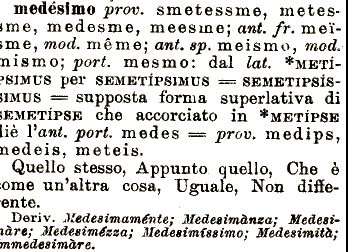 medésimo prov. smetessme, metes-
sme, medesme, meesme; ant. fr. meï-
sme, mod. même; ant. sp. meismo, mod.
mismo; port. mesmo: dal lat. *METÍ-
PSIMUS per SEMETÍPSIMUS = SEMETIPSÍS-
SIMUS = supposta forma superlativa di
SEMETÍPSE che accorciato in *METÍPSE
diè l'ant. port. medes = prov. medips,
medeis, meteis.
Quello stesso, Appunto quello, Che è
come un'altra cosa, Uguale, Non diffe-
rente.
Deriv. Medesimaménte; Medesimànza; Medesi-
màre; Medesimézza; Medesimíssimo; Medesimità;
Immedesimàre.